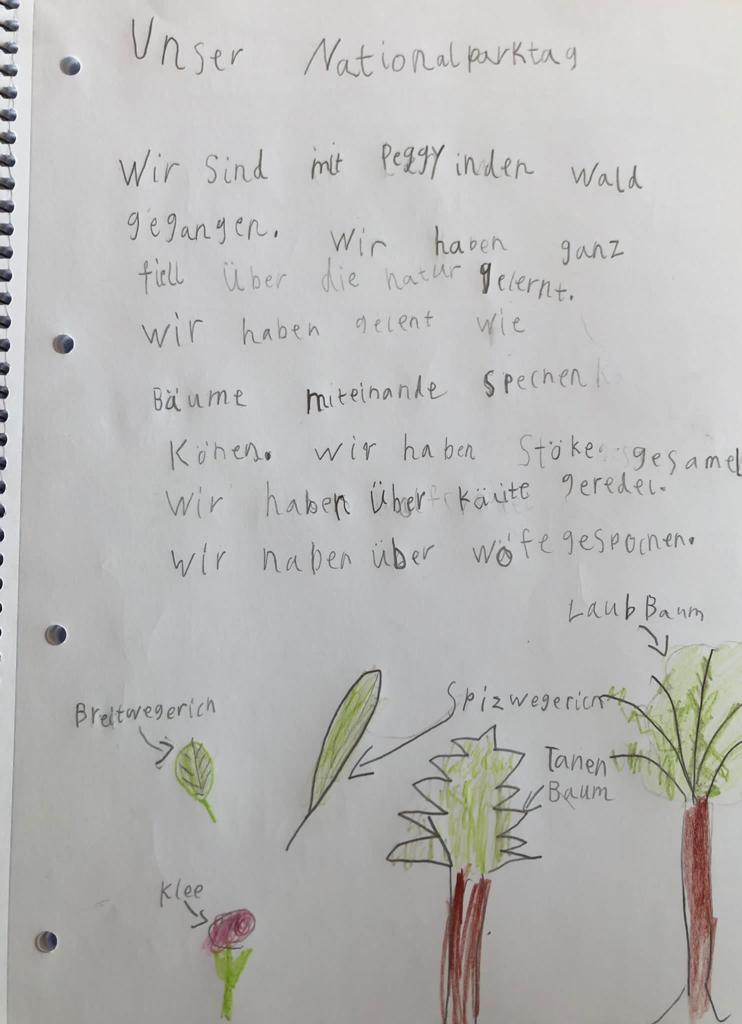 Unser Nationalparktag
Wir sind mit Peggy inden Wald
gegangen. Wir haben ganz
fiell über die natur gelernt.
wir haben gelent wie
Bäume miteinande spechen
Könen. wir haben Stöke gesamel
Wir haben über käute geredet.
wir haben über wöfe gespochen.
Laub Baum
Breitwegerich
Spizwegerich
Tanen
Baum
Klee